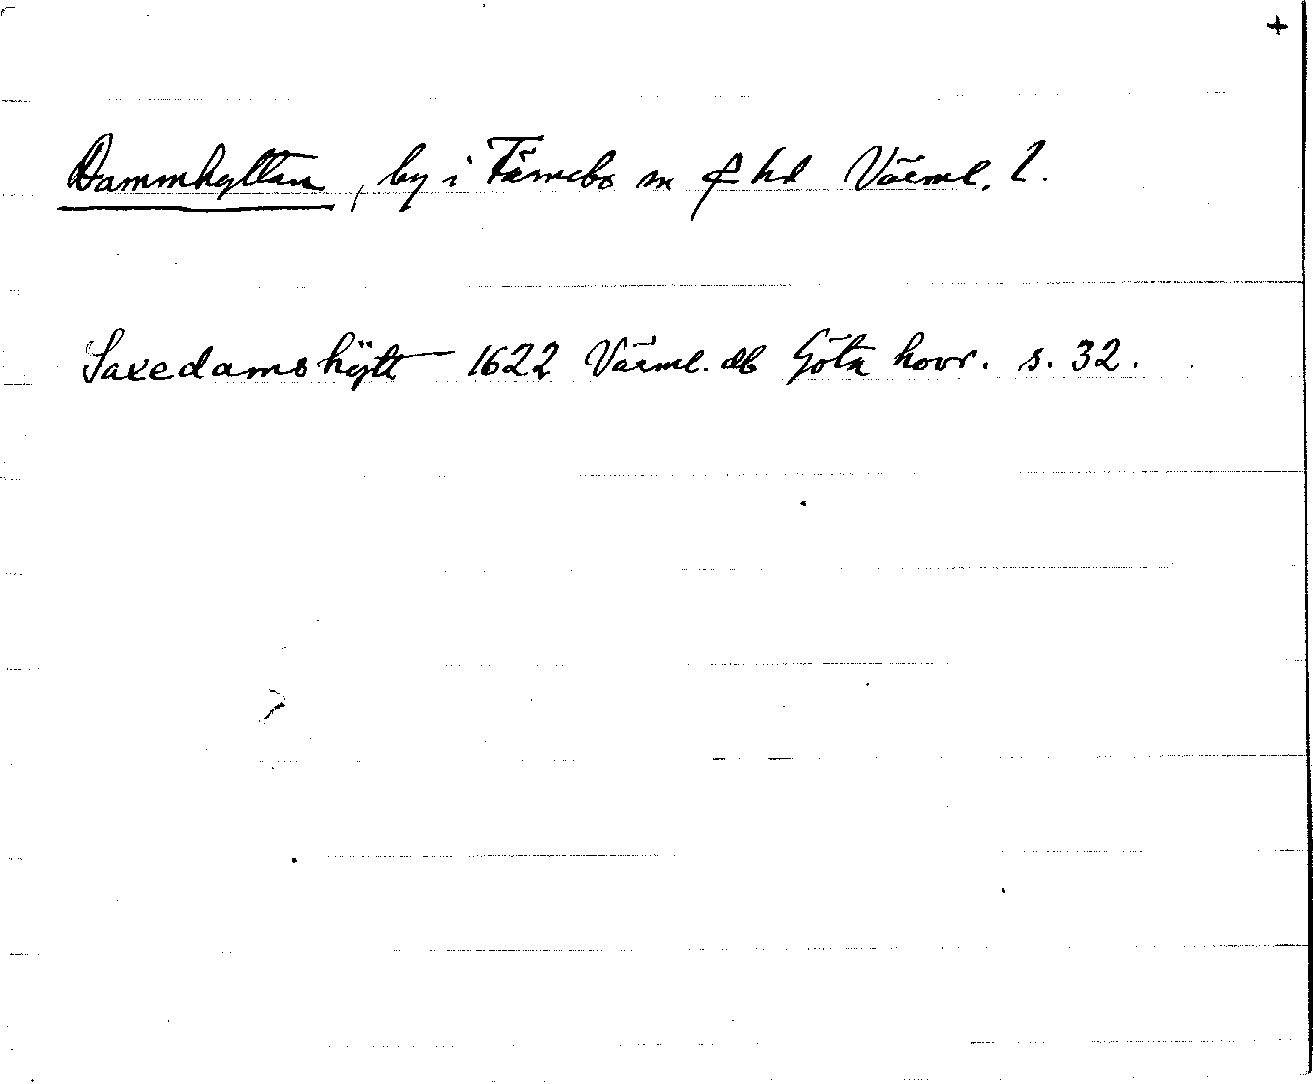 +
Dammhyttan, by i Färnebo sn o hd Värml. l.
Saxedamshÿtt 1622 Värml. db Göta hovr. s. 32.